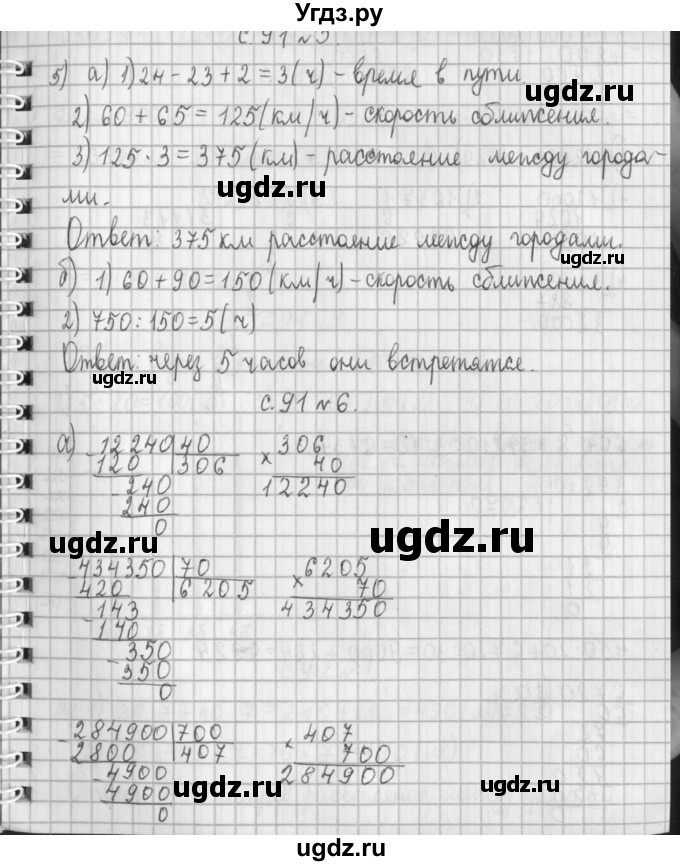 Угдз.ру
с. 91 № 5.
5) а) 1) 24 - 23 + 2 = 3 (ч) - время в пути
2) 60 + 65 = 125 (км/ч) - скорость сближения.
3) 125 · 3 = 375 (км) - расстояние между города-
ми.
ugdz.ru
Ответ: 375 км расстояние между городами.
ugdz.ru
б) 1) 60 + 90 = 150 (км/ч) - скорость сближения.
2) 750 : 150 = 5 (ч)
Ответ: через 5 часов они встретятся.
ugdz.ru
с. 91 № 6.
а) - 12240 | 40
120 | 306
- 240
240
0
× 306
40
12240
ugdz.ru
ugdz.ru
- 434350 | 70
420 | 6205
- 143
140
- 350
350
0
× 6205
70
434350
ugdz.ru
- 284900 | 700
2800 | 407
- 4900
4900
0
× 407
700
284900
ugdz.ru
ugdz.ru
Угдз.ру